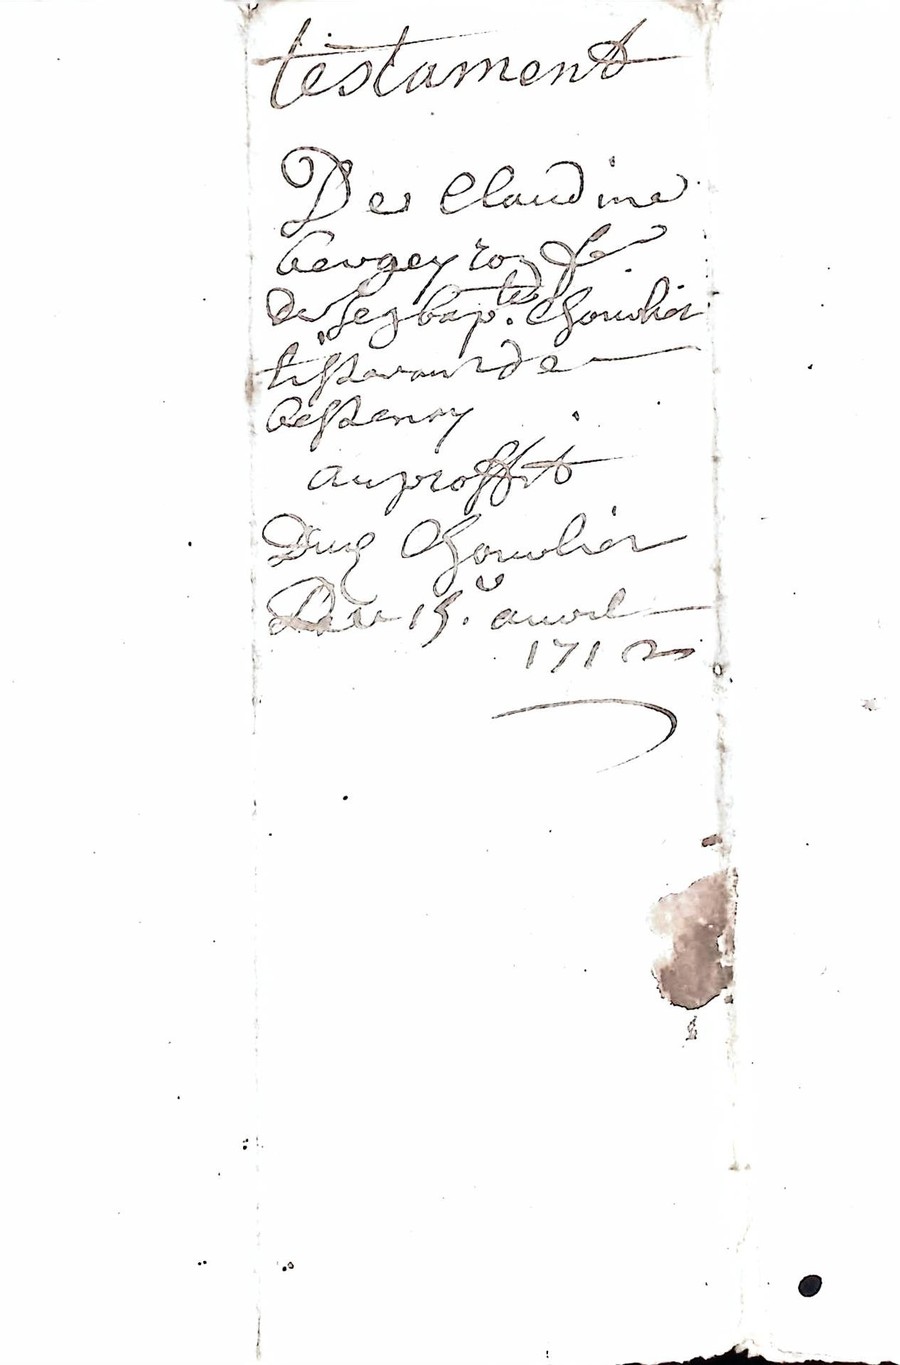 testament
De Claudine
bergeyron fe
de Jeg bap.te Choulier
tisseran de
bessenay
au proffit
Dug Choulier
Du 15.e auvril
1712